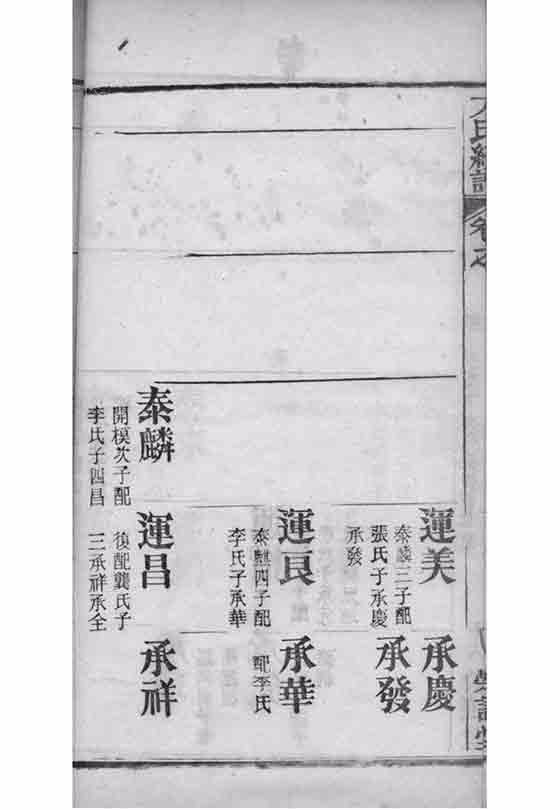 氏
卷之
運美
泰麟三子配
張氏子承慶
承發
承慶
承發
運良
泰麟四子配
李氏子承華
承華
配李氏
泰麟
開模次子配
李氏子四昌
運昌
後配龔氏子
三承祥承全
承祥